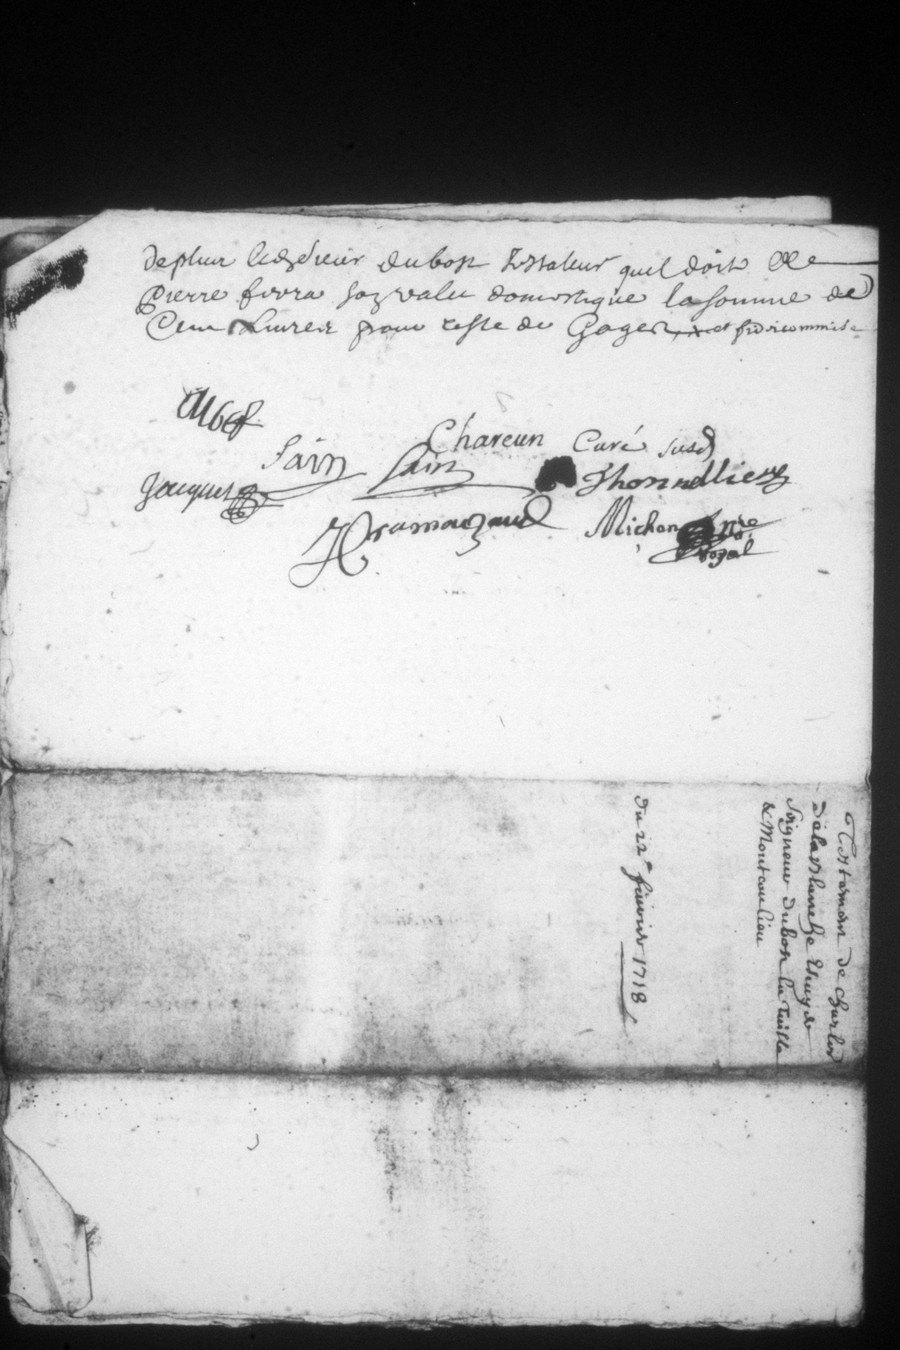 de plus led sieur dubost testateur quil doit a
Pierre son valet domestique la somme de
Cent Livres pour reste de Gages et fideicommise
Sain Sain Charcun Curé susd
Jacquet Thonnellier
Michon nre
royal
Testament de Charles
Delablanche Escuyer
Seigneur dubost la Tuille
& Montaulieu
du 22e fevrier 1718